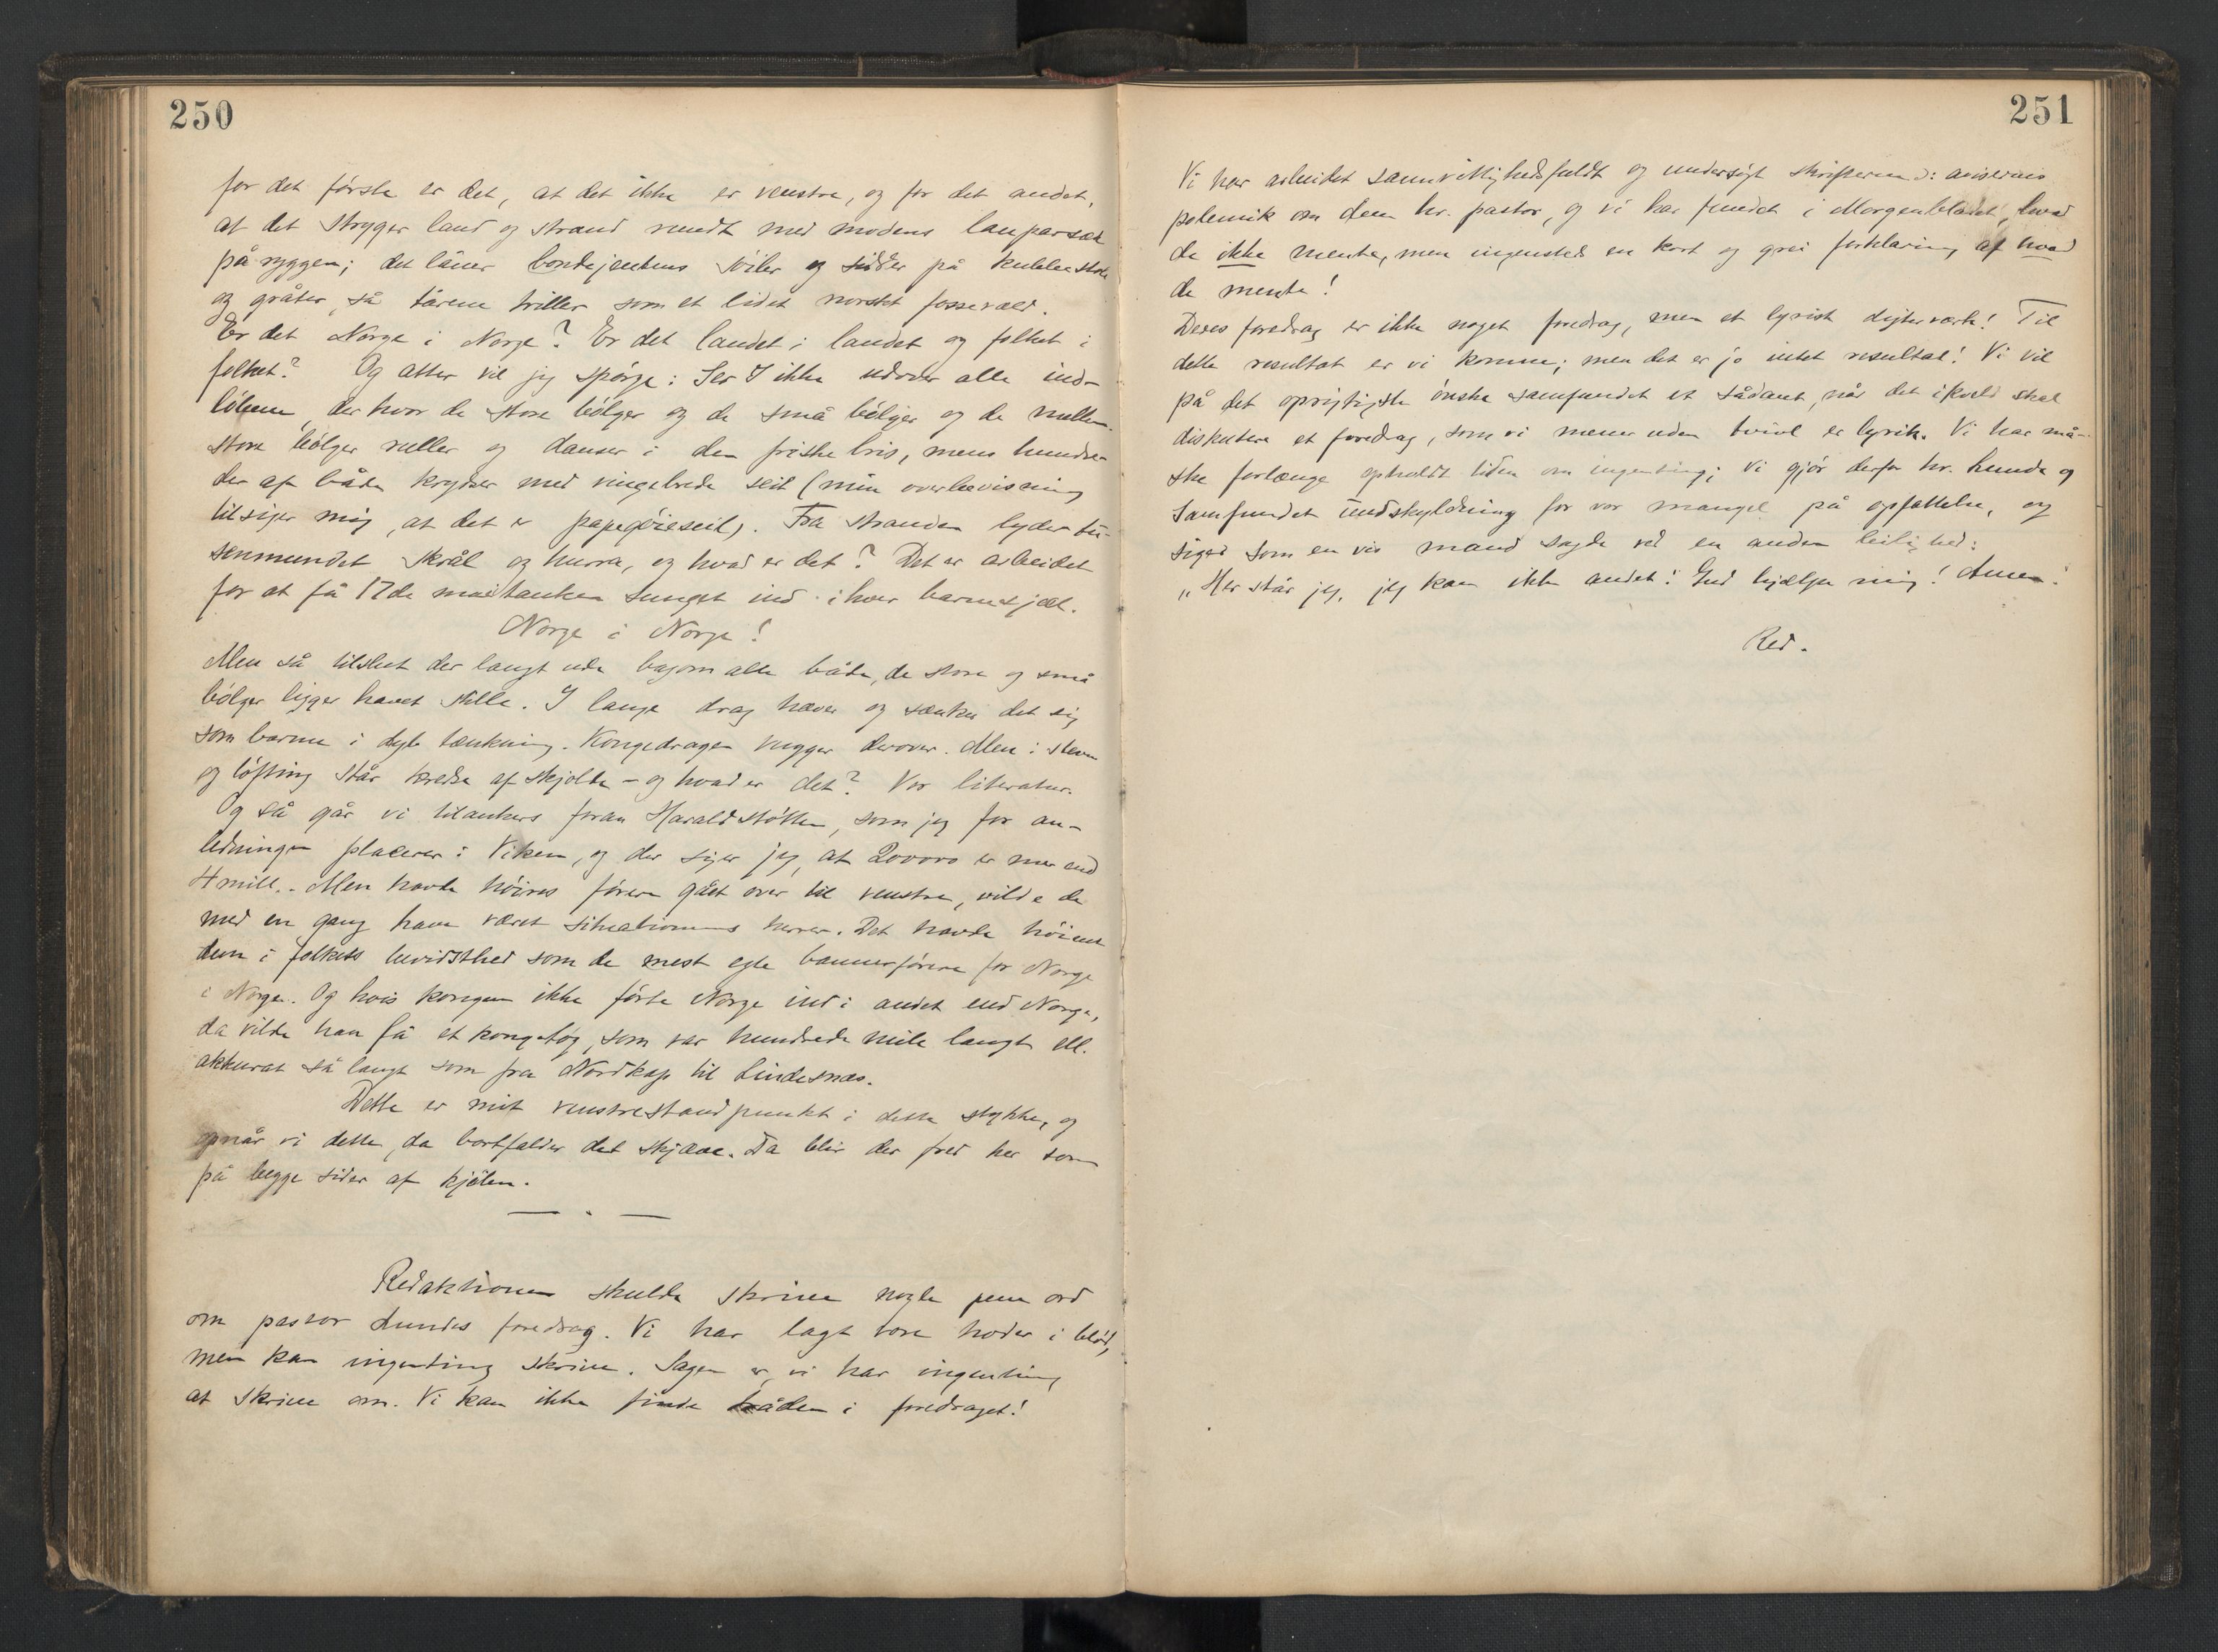 250
for det første er det, at det ikke er venstre, og for det andet,
at det strygger land og strand rundt med modens lauparsæk
på ryggen; det låner bondejentens söiler og sidder på kubbestole
og gråter, så tårene triller som et lidet norskt fossevæld.
Er det Norge i Norge? Er det landet i landet og folket i
folket? Og atter vil jeg spørge: Ser I ikke udover alle ind-
löbene, der hvor de store bölger og de små bölger og de mellem-
store bölger ruller og danser i den friske bris, mens hundre-
der af både krydser med vingebrede seil (min overbevisning
tilsiger mig, at det er papegöieseil). Fra stranden lyder tu-
senmundet skrål og hurra, og hvad er det? Det er arbeidet
for at få 17de maitanken sunget ind i hver barnesjæl.
Norge i Norge!
Men så tilslut der langt ude bagom alle både, de store og små
bölger ligger havet stille. I lange drag hæver og sænker det sig
som barme i dyb tænkning. Kongedragen vugger derover. Men i stevn
og löfting står kredse af skjolde - og hvad er det? Vor literatur.
Og så går vi tilankers foran Haraldstötten, som jeg for an-
ledningen placerer i Viken, og der siger jeg, at 200000 er mer end
4 mill. - Men havde höires förere gået over til venstre, vilde de
med en gang have været situationens herrer. Det havde höinet
dem i folkets bevidsthed som de mest egte bannerförere for Norge
i Norge. Og hvis kongen ikke förte Norge ind i andet end Norge,
da vilde han få et kongetog, som var hundrede mile langt ell.
akkurat så langt som fra Nordkap til Lindesnæs.
Dette er mit venstrestandpunkt i dette stykke, og
opnår vi dette, da bortfalder det skjæve. Da blir der fred her som
på begge sider af kjölen.
— . —
Redaktionen skulde skrive nogle pene ord
om pastor Lundes foredrag. Vi har lagt vore hoder i blöd,
men kan ingenting skrive. Sagen er, vi har ingenting
at skrive om. Vi kan ikke finde tråden i foredraget!
251
Vi har arbeidet samvittighedsfuldt og undersögt skrifterne ɔ: avisernes
polemik om dem hr. pastor, og vi har fundet i Morgenbladet, hvad
de ikke mente, men ingensteds en kort og grei forklaring af hvad
de mente!
Deres foredrag er ikke noget foredrag, men et lyrisk digterværk! Til
dette resultat er vi komne; men det er jo intet resultat! Vi vil
på det oprigtigste önske samfundet et sådant, når det ikveld skal
diskutere et foredrag, som vi mener uden tvivl er lyrik. Vi har må-
ske forlænge opholdt tiden om ingenting; vi gjör derfor hr. Lunde og
Samfundet undskyldning for vor mangel på opfattelse, og
siger som en vis mand sagde ved en anden leilighed:
"Her står jeg, jeg kan ikke andet! Gud hjælpe mig! Amen!
Red.